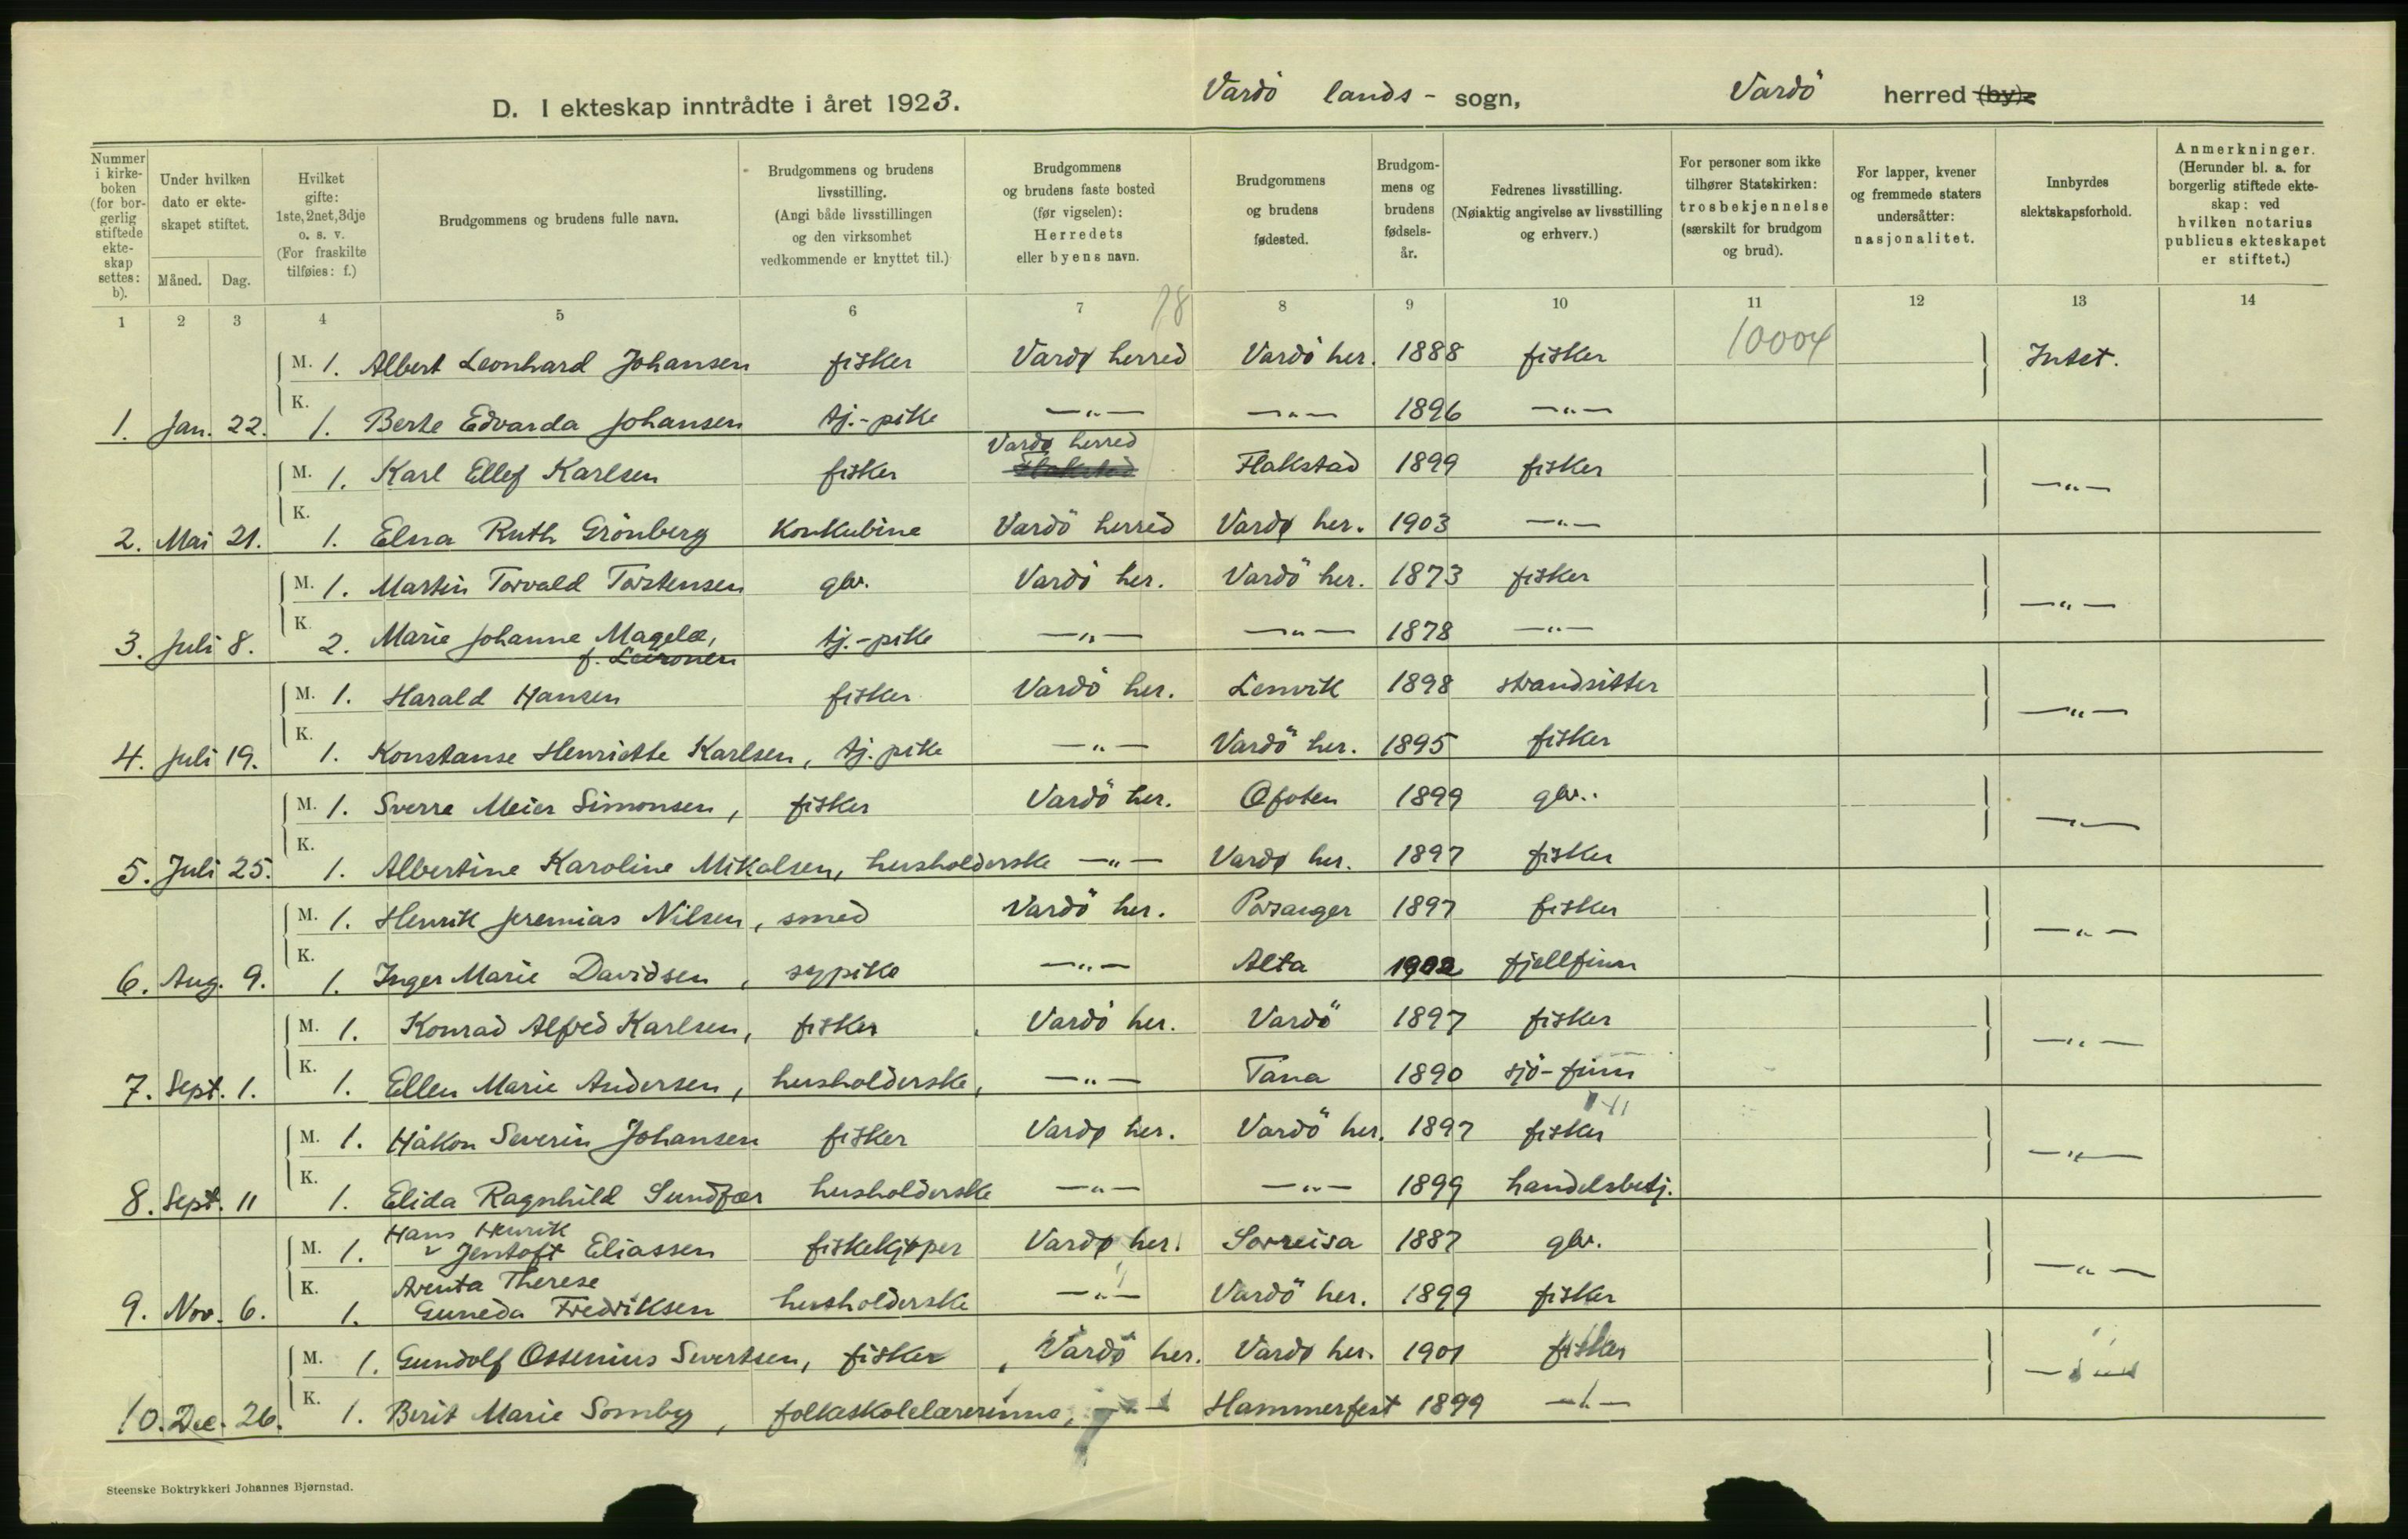 D. I ekteskap inntrådte i året 1923. Vardö lands- sogn, Vardö herred (by).
Nummer i kirke-boken (for bor-gerlig stiftede ekte-skap settes: b).
Under hvilken dato er ekte-skapet stiftet.
Måned. Dag.
Hvilket gifte: 1ste, 2net, 3dje o. s. v. (For fraskilte tilføies: f.)
Brudgommens og brudens fulle navn.
Brudgommens og brudens livsstilling. (Angi både livsstillingen og den virksomhet vedkommende er knyttet til.)
Brudgommens og brudens faste bosted (før vigselen): Herredets eller byens navn.
Brudgommens og brudens fødested.
Brudgom-mens og brudens fødsels-år.
Fedrenes livsstilling. (Nøiaktig angivelse av livsstilling og erhverv.)
For personer som ikke tilhører Statskirken: trosbekjennelse (særskilt for brudgom og brud).
For lapper, kvener og fremmede staters undersåtter: nasjonalitet.
Innbyrdes slektskapsforhold.
Anmerkninger. (Herunder bl. a. for borgerlig stiftede ekte-skap: ved hvilken notarius publicus ekteskapet er stiftet.)
1 2 3 4 5 6 7 8 9 10 11 12 13 14
78 10004
M. 1. Albert Leonhard Johansen fisker Vardø herred Vardö her. 1888 fisker Intet.
1. Jan. 22. K. 1. Berte Edvarda Johansen tj.-pike —"— —"— 1896 —"—
M. 1. Karl Ellef Karlsen fisker Vardø herred Flakstad Flakstad 1899 fisker —"—
2. Mai 21. K. 1. Elna Ruth Grönberg Konkubine Vardö herred Vardø her. 1903 —"—
M. 1. Martin Torvald Torstensen gbr. Vardö her. Vardö her. 1873 fisker —"—
3. Juli 8. K. 2. Marie Johanne Magelæ, tj.-pike —"— —"— 1878 —"—
M. 1. Harald Hansen fisker Vardö her. Lenvik 1898 strandsitter —"—
4. Juli 19. K. 1. Konstanse Henriette Karlsen, tj. pike —"— Vardö her. 1895 fisker
M. 1. Sverre Meier Simonsen, fisker Vardö her. Ofoten 1899 gbr. —"—
5. Juli 25. K. 1. Albertine Karoline Mikalsen, husholderske —"— Vardø her. 1897 fisker
M. 1. Henrik Jeremias Nilsen, smed Vardö her. Porsanger 1897 fisker —"—
6. Aug. 9. K. 1. Inger Marie Davidsen, sypike —"— Alta 1902 fjellfinn
M. 1. Konrad Alfred Karlsen, fisker Vardö her. Vardö 1897 fisker —"—
7. Sept. 1. K. 1. Ellen Marie Andersen, husholderske, —"— Tana 1890 sjö-finn
M. 1. Håkon Severin Johansen fisker Vardø her. Vardö her. 1897 fisker —"—
8. Sept. 11 K. 1. Elida Ragnhild Sundfær husholderske —"— —"— 1899 handelsbetj.
Hans Henrik
M. 1. Jentoft Eliassen fiskekjøper Vardø her. Sørreisa 1887 gbr. —"—
Arenta Therese
9. Nov. 6. K. 1. Guneda Fredriksen husholderske —"— Vardö her. 1899 fisker
M. 1. Gundolf Ossenius Sivertsen, fisker, Vardö her. Vardø her. 1901 fisker —"—
10. Dec. 26. K. 1. Berit Marie Somby, folkeskolelærerinne, —"— Hammerfest 1899 —"—
Steenske Boktrykkeri Johannes Bjørnstad.